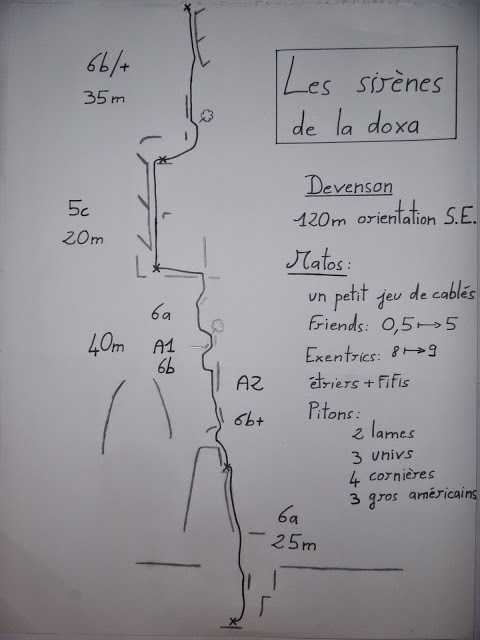 Les sirènes
de la doxa
6b/+
35m
Devenson
120m orientation S.E.
5c
20m
Matos:
un petit jeu de cablés
Friends: 0,5 ↦ 5
Exentrics: 8 ↦ 9
étriers + FiFis
Pitons:
2 lames
3 univs
4 cornières
3 gros américains
6a
40m A1
6b
A2
6b+
6a
25m